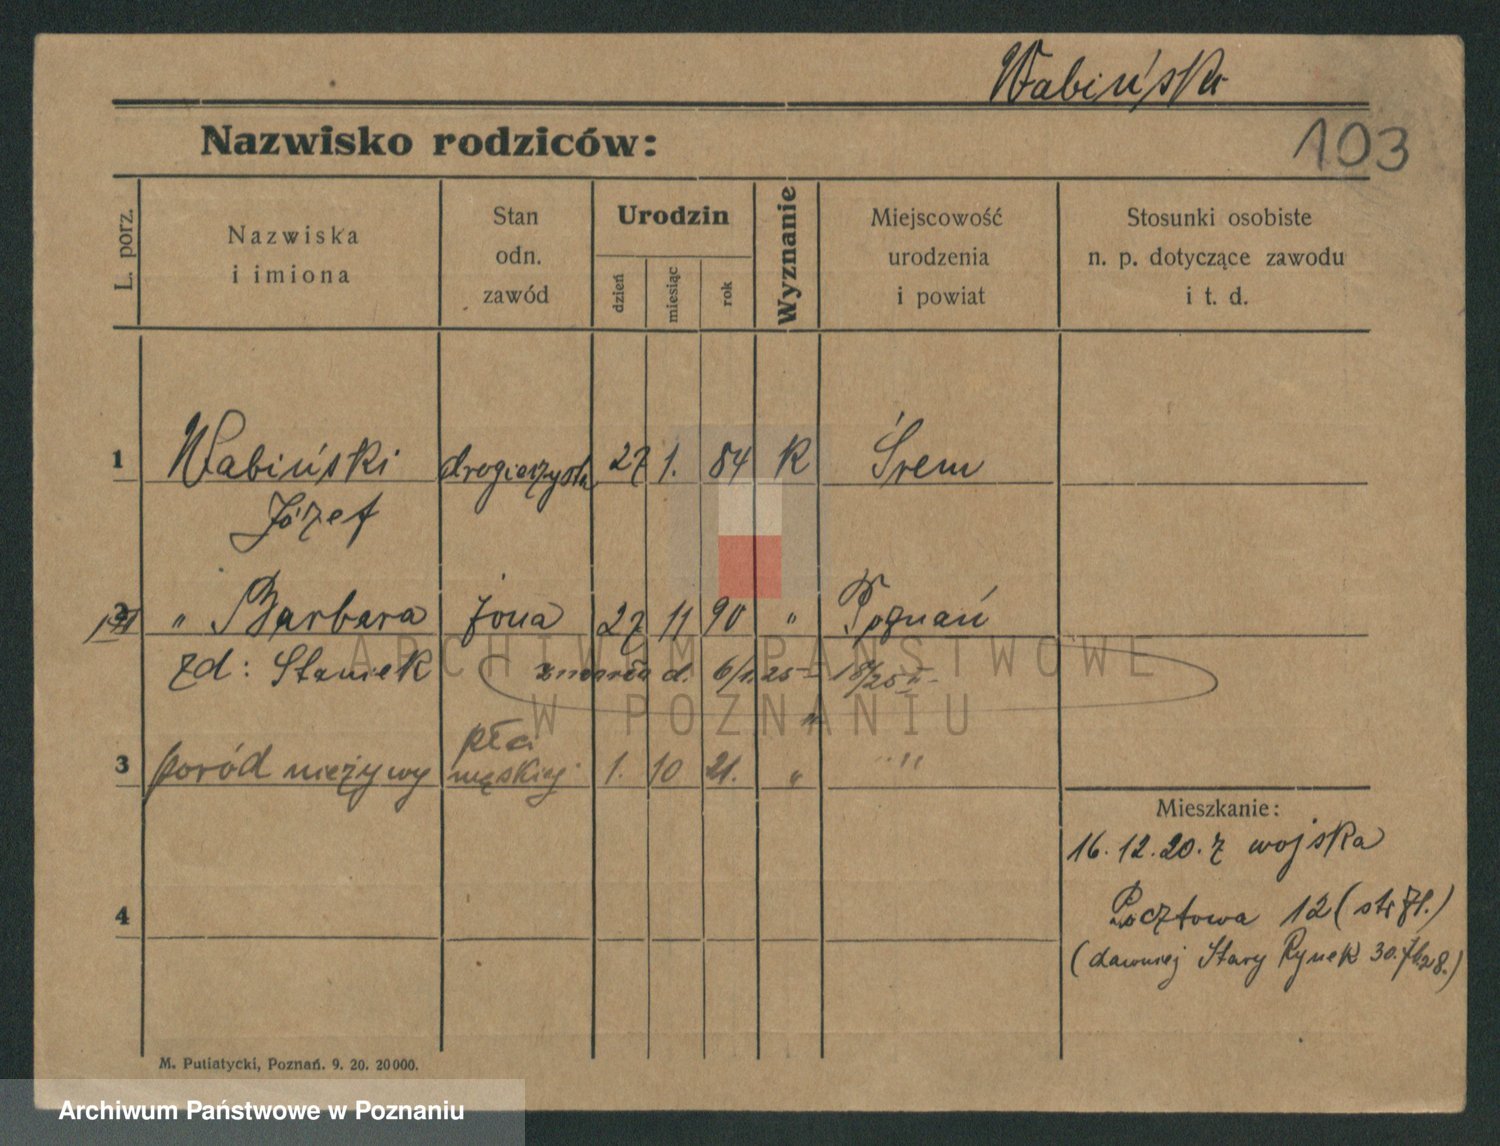 Wabiński
Nazwisko rodziców:
103
L. porz.
Nazwiska
i imiona
Stan
odn.
zawód
Urodzin
dzień
miesiąc
rok
Wyznanie
Miejscowość
urodzenia
i powiat
Stosunki osobiste
n. p. dotyczące zawodu
i t. d.
1 Wabiński drogierzysta 27 1. 84 K Śrem
Józef
2 " Barbara żona 27 11 90 " Poznań
zd: Staniek zmarła d. 6/1. 25
ARCHIWUM PAŃSTWOWE
W POZNANIU
płci
3 poród nieżywy męskiej 1. 10 21. " "
Mieszkanie:
16.12.20. z wojska
4
Pocztowa 12
(dawniej Stary Rynek 30.
M. Putiatycki, Poznań. 9. 20. 20000.
Archiwum Państwowe w Poznaniu